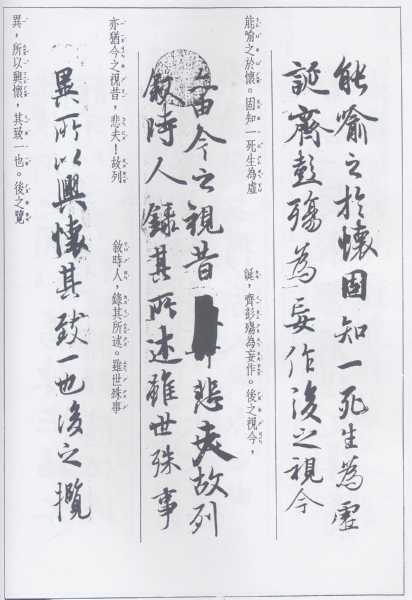 能喻之於懷固知一死生為虛
誕齊彭殤為妄作後之視今
能喻之於懷。固知一死生為虛
誕，齊彭殤為妄作。後之視今，
由今之視昔悲夫故列
敘時人錄其所述雖世殊事
亦猶今之視昔，悲夫！故列
敘時人，錄其所述。雖世殊事
異所以興懷其致一也後之攬
異，所以興懷，其致一也。後之覽